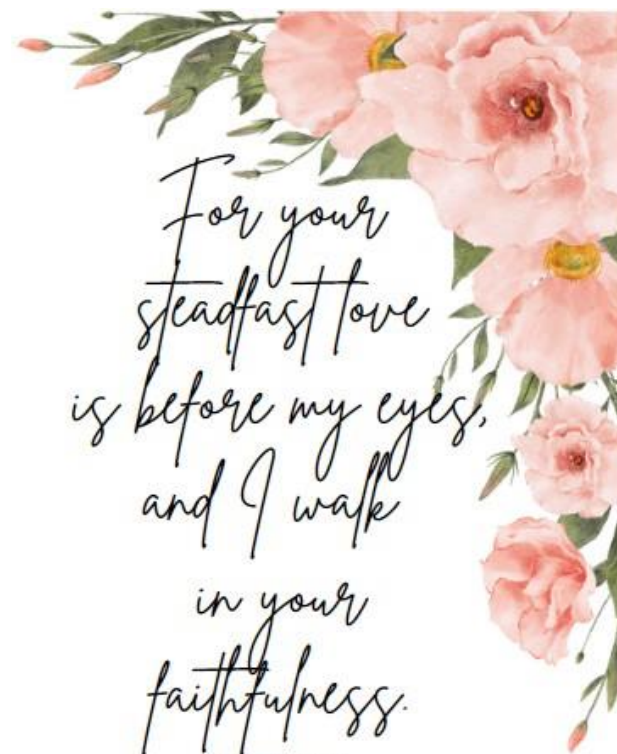 For your
steadfast love
is before my eyes,
and I walk
in your
faithfulness.